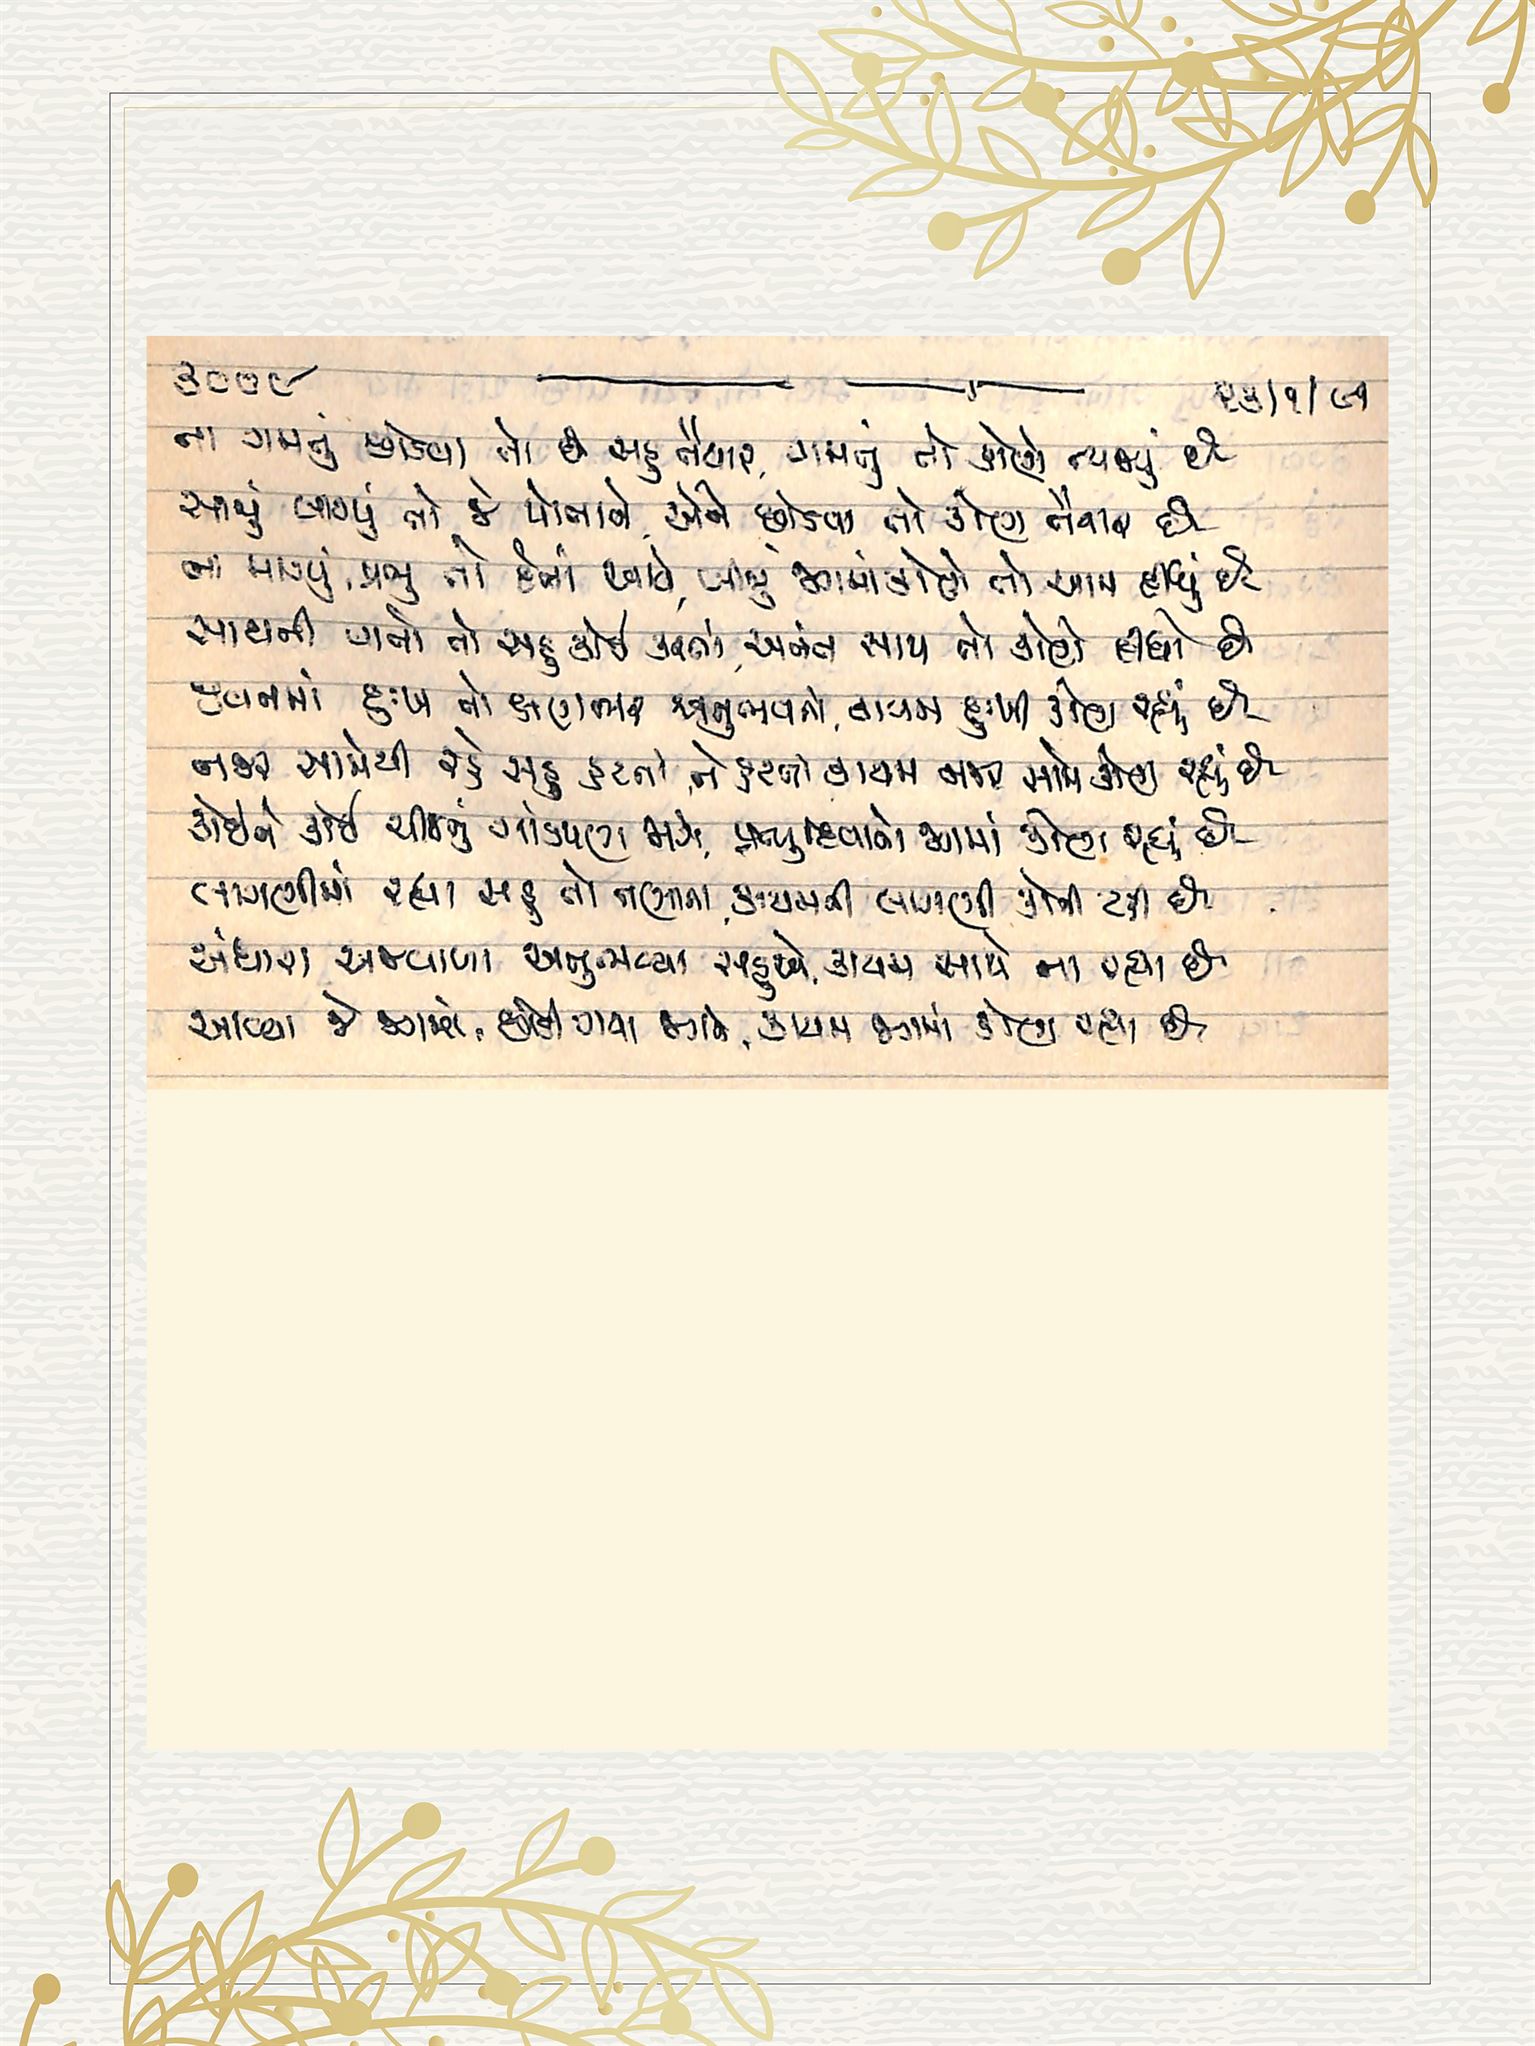 ૩૦૦૯ ૨૩/૧/૯૧
ના ગમતું છોડવા તો છે સહુ તૈયાર, ગમતું તો કોણે ત્યજ્યું છે
સાચું લાગ્યું તો જે પોતાને, એને છોડવા તો કોણ તૈયાર છે
ના માગ્યું, પ્રભુ તો દેતાં આવે, બીજું જગમાં કોણે તો આમ દીધું છે
સાથની વાતો તો સહુ કોઈ કરતા, અનંત સાથ તો કોણે દીધો છે
જીવનમાં દુઃખ તો ક્ષણભર અનુભવતો, કાયમ દુઃખી કોણ રહ્યું છે
નજર સામેથી રહે સહુ હટતો, ને હટતો કાયમ નજર સામે કોણ રહ્યું છે
કોઈને કોઈ ચીજનું ગાંડપણ જાગે, જગમાં કોણ રહ્યું છે
લાગણીમાં રહ્યા સહુ તો તણાતા, કાયમની લાગણી કોની ટકી છે
અંધારા અજવાળા અનુભવ્યા સહુએ, કાયમ સાથે ના રહ્યા છે
આવ્યા જે જગમાં, છોડી ગયા જગને, કાયમ જગમાં કોણ રહ્યા છે